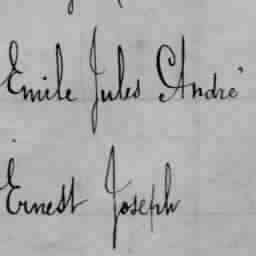 Emile Jules André
Ernest Joseph